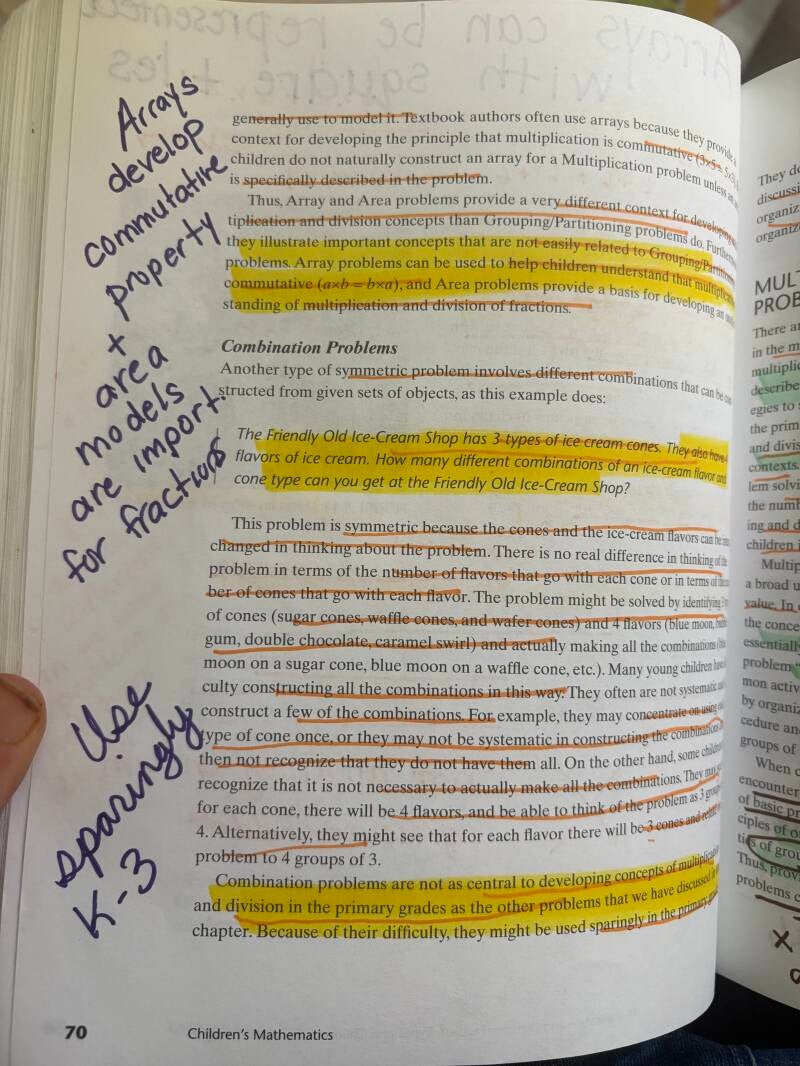 Arrays can be represented
with square tiles
Arrays
develop
commutative
property
+
area
models
are import.
for fractions
Use
sparingly
K-3
generally use to model it. Textbook authors often use arrays because they provide a
context for developing the principle that multiplication is commutative (3×5 = 5×3)
children do not naturally construct an array for a Multiplication problem unless an
is specifically described in the problem.
Thus, Array and Area problems provide a very different context for developing
tiplication and division concepts than Grouping/Partitioning problems do. Further
they illustrate important concepts that are not easily related to Grouping/Partitioning
problems. Array problems can be used to help children understand that multiplic
commutative (a×b = b×a), and Area problems provide a basis for developing an
standing of multiplication and division of fractions.
Combination Problems
Another type of symmetric problem involves different combinations that can be con
structed from given sets of objects, as this example does:
The Friendly Old Ice-Cream Shop has 3 types of ice cream cones. They also have 4
flavors of ice cream. How many different combinations of an ice-cream flavor and
cone type can you get at the Friendly Old Ice-Cream Shop?
This problem is symmetric because the cones and the ice-cream flavors can be
changed in thinking about the problem. There is no real difference in thinking of the
problem in terms of the number of flavors that go with each cone or in terms of the
ber of cones that go with each flavor. The problem might be solved by identifying
of cones (sugar cones, waffle cones, and wafer cones) and 4 flavors (blue moon,
gum, double chocolate, caramel swirl) and actually making all the combinations
moon on a sugar cone, blue moon on a waffle cone, etc.). Many young children
culty constructing all the combinations in this way. They often are not systematic
construct a few of the combinations. For example, they may concentrate on using
type of cone once, or they may not be systematic in constructing the combinations
then not recognize that they do not have them all. On the other hand, some
recognize that it is not necessary to actually make all the combinations. They may
for each cone, there will be 4 flavors, and be able to think of the problem as 3
4. Alternatively, they might see that for each flavor there will be 3 cones and
problem to 4 groups of 3.
Combination problems are not as central to developing concepts of multiplication
and division in the primary grades as the other problems that we have discussed
chapter. Because of their difficulty, they might be used sparingly in the primary
70 Children's Mathematics
They do
discussi
organiz
organize
MUL
PROB
There a
in the m
multiplic
describe
egies to
the prim
and divis
contexts.
lem solvi
the numb
ing and d
children i
Multip
a broad u
value. In
the conce
essentially
problem
mon activ
by organiz
cedure an
groups of
When c
encounter
of basic pr
ciples of o
ties of grou
Thus, prov
problems c